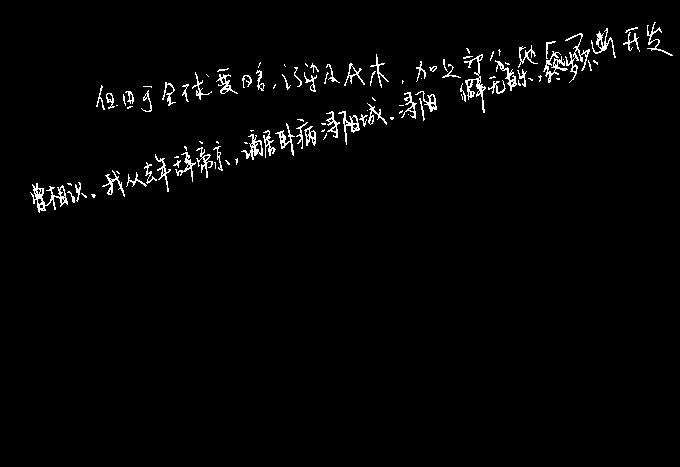 但由于全球变暖，污染及人木，加之部分地区不断开发
曾相识。我从去年辞帝京，谪居卧病浔阳城。浔阳 僻无音乐，终岁不